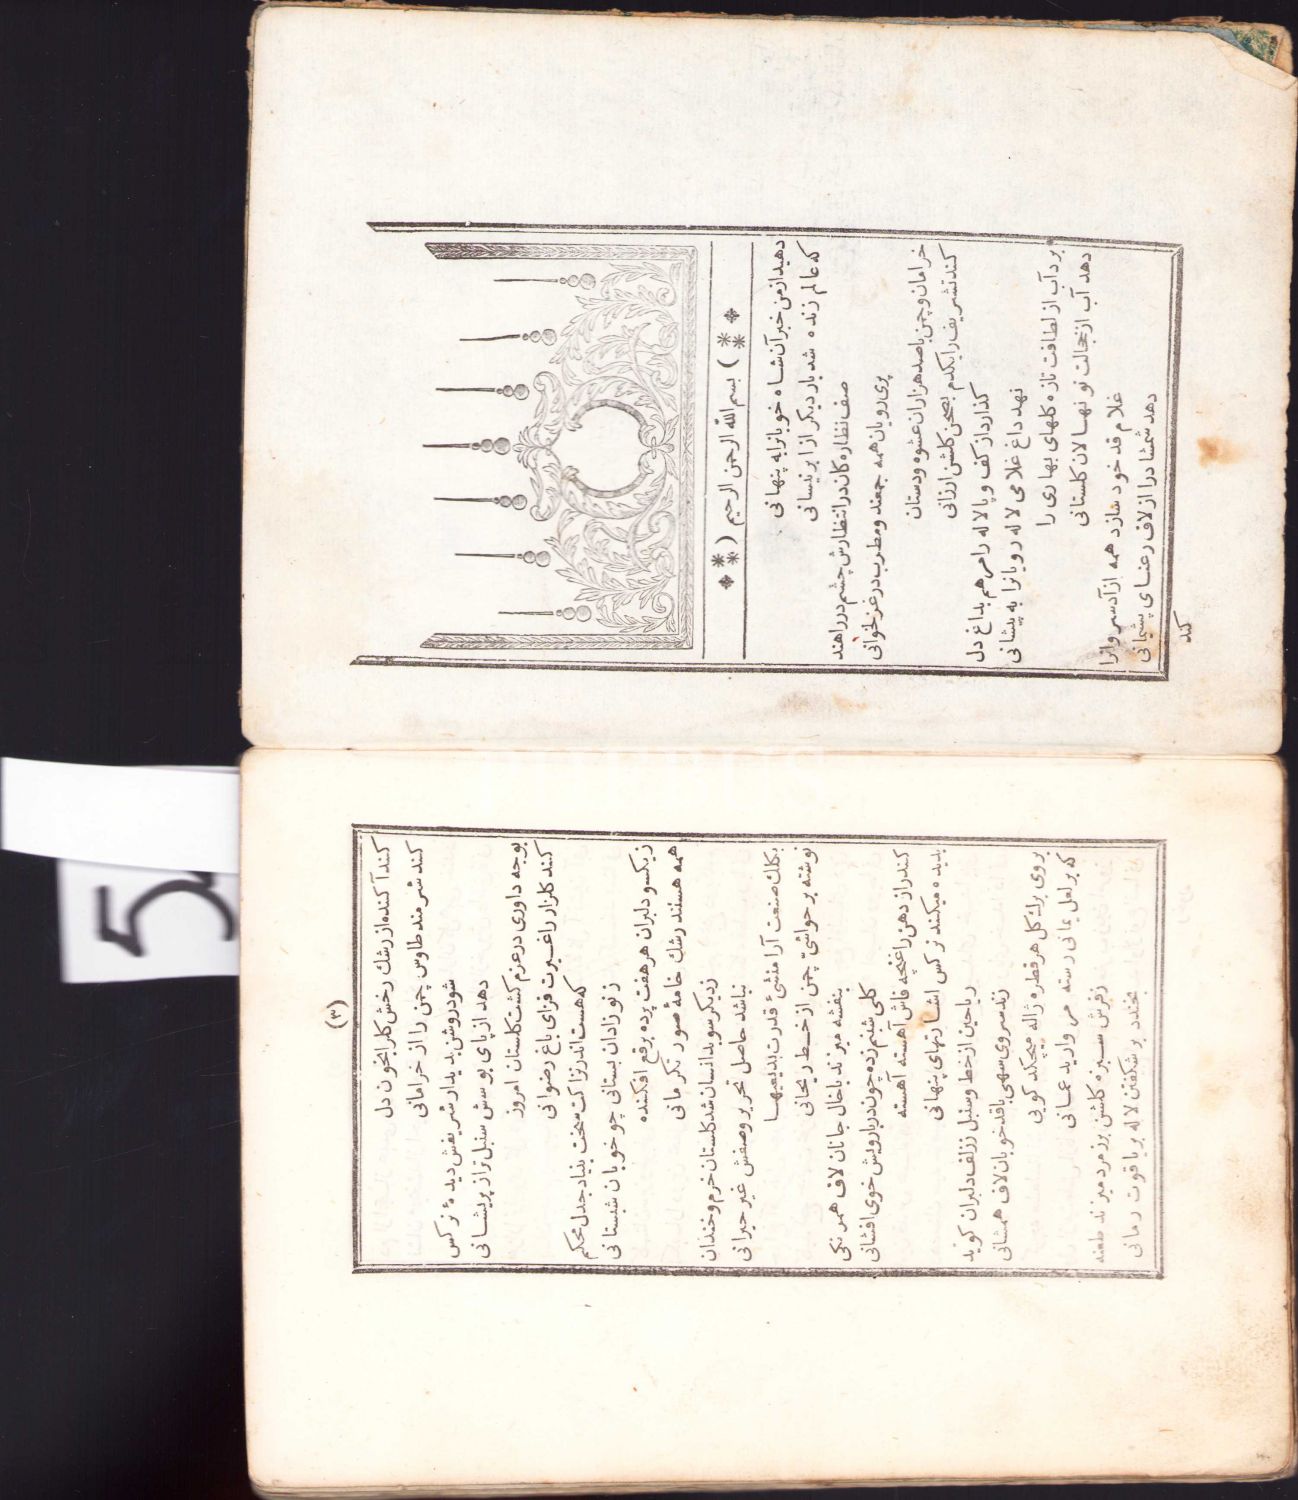 بسم الله الرحمن الرحيم
دهید از من خبر آن شاه خوبانرا به پنهانی
که عالم زنده شد بار دیکر از ابر نیسانی
صف نظاره کان در انتظارش چشم در راهند
پری رویان همه جمعند و مطرب در غزلخوانی
خرامان و چمن با صد هزاران عشوه و دستان
کند تشریف را یکدم بصحن کلشن ارزانی
کذارد از کف و پا لاله را مرهم بداغ دل
نهد داغ غلامی لاله رویانرا به پیشانی
برد آب از لطافت تازه کلهای بهاری را
دهد آب از خجالت نو نهالان کلستانی
غلام قد خود سازد همه آزاد سروانرا
دهد شمشادرا از لاف رعنای پشیمانی
کند
(٣)
کند آکنده از رشك رخش کلرا بخون دل
کند شرمند طاوس چمن را از خرامانی
شود روشن بدیدار شریفش دیدهٔ نرکس
دهد از پای بوسش سنبل تر از پریشانی
بوجه داوری در عزم کشت کلستان امروز
کند کلزار را غیرت فزای باغ رضوانی
که هست اندر نزاکت سخت بنیاد جدل محکم
ز نوزادان بستانی چو خوبان شبستانی
ز یکسو دلبران هر هفت پرده برقع افکنده
همه هستند رشك خامهٔ صورتکر مانی
ز دیکر سو بدانسان شد کلستان خرم و خندان
نباشد حاصل تحریر وصفش غیر حیرانی
بکلك صنعت آرا منشئ قدرت بدیعیها
نوشته بر حواشئ چمن از خط ریحانی
بنفشه میزند با خال جانان لاف همرنکی
کلی شبنم زده چون دربا رویش خوی افشانی
کند راز دهن را غنچه فاش آهسته آهسته
بدیده میکند نرکس اشارتهای پنهانی
ریاحین از خط و سنبل ز زلف دلبران کوید
زند سروی سهی با قد خوبان لاف همشانی
بروی برك کل هر قطره ژاله میچکد کویی
که بر لعل یمانی رسته مروارید عمانی
ز فرش سبزه کلشن بر زمرد میزند طعنه
بخندد بر شکفتن لاله بر یاقوت رمانی
5